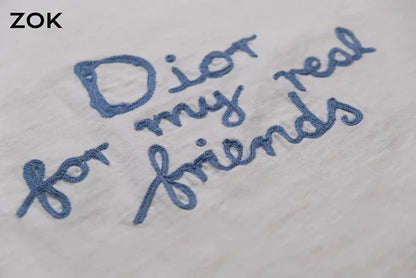 ZOK
Dior
for my real
friends